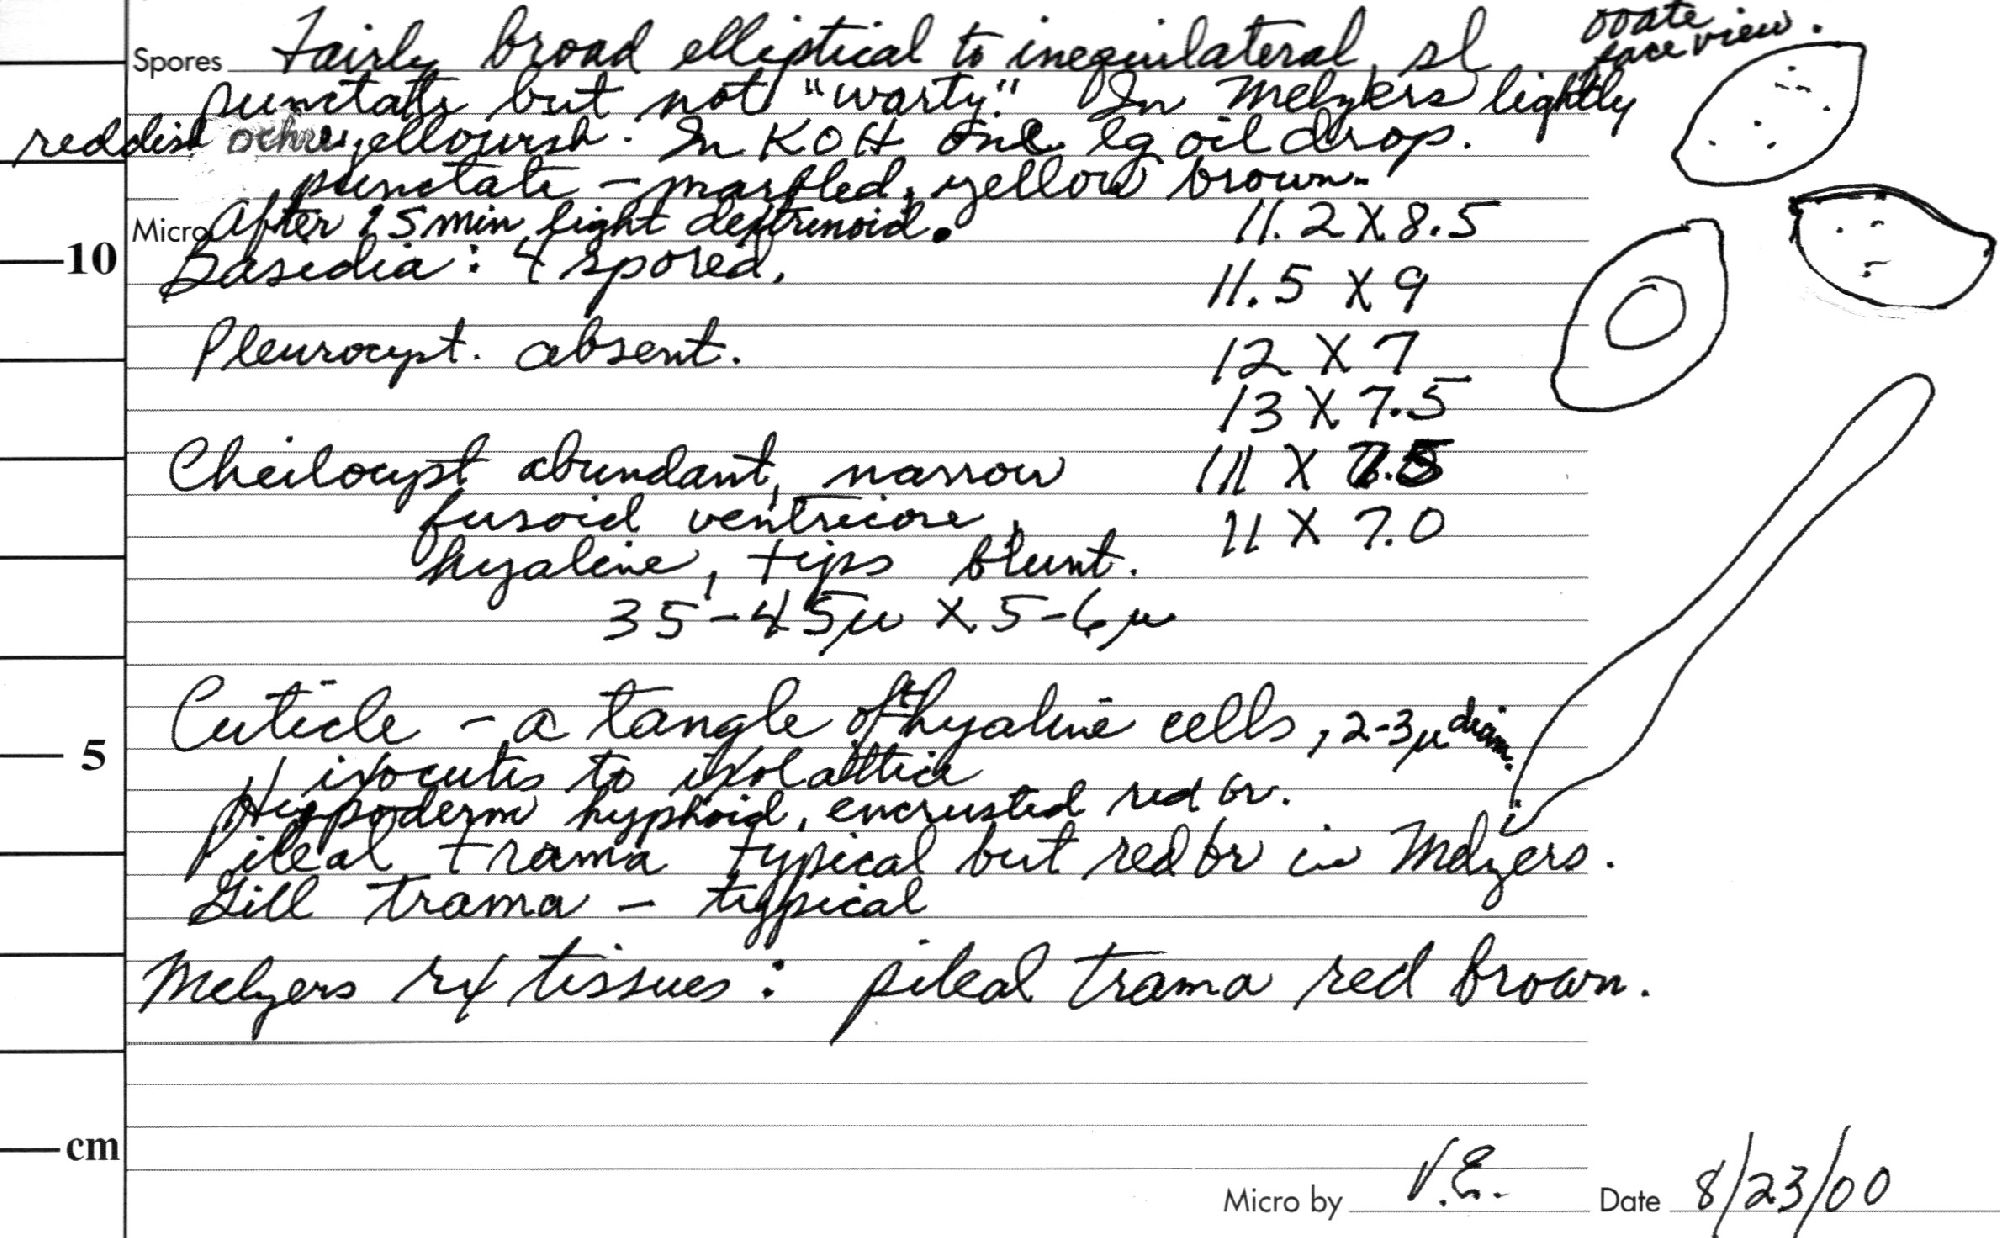 Spores Fairly broad elliptical to inequilateral, sl ovate face view.
punctate but not "warty." In Melzers lightly
reddish ochre yellowish. In KOH one lg oil drop.
punctate - marbled, yellow brown.
Micro After 15 min light dextrinoid. 11.2 X 8.5
10 Basidia: 4 spored. 11.5 X 9
Pleurocyst. absent. 12 X 7
13 X 7.5
Cheilocyst abundant, narrow 11 X
fusoid ventricose, 11 X 7.0
hyaline, tips blunt.
35-45µ X 5-6µ
5 Cuticle - a tangle of hyaline cells, 2-3µ diam.
ixocutis to ixolattice
Hypoderm hyphoid, encrusted red br.
Pileal trama typical but red br in Melzers.
Gill trama - typical
Melzers rx tissues: pileal trama red brown.
cm
Micro by V.E. Date 8/23/00